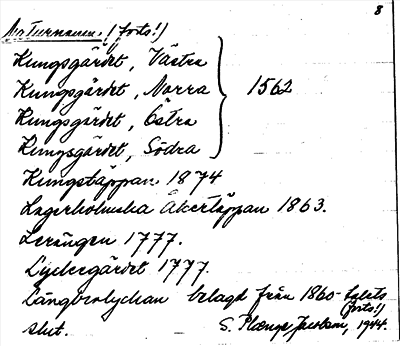 8
Naturnamn. (forts!)
Kungsgärdet, Västra
Kungsgärdet, Norra } 1562
Kungsgärdet, Östra
Kungsgärdet, Södra
Kungstäppan 1874
Lagerholmska Åkertäppan 1863.
Lerängen 1777.
Lyckergärdet 1777.
Långbrolyckan belagd från 1860-talets
(forts!)
slut. S. Jacobson, 1944.